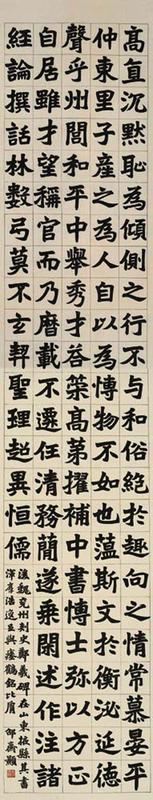 高直沉默恥為傾側之行不与和俗絶於趣向之情常慕晏平
仲東里子產之為人自以為博物不如也薀斯文於衡泌延德
聲乎州閭和平中舉秀才荅策高第擢補中書博士弥以方正
自居雖才望稱官而乃曆載不遷任清務簡遂乘閑述作注諸
経論撰話林數弓莫不玄契聖理超異恒儒
後魏兗州刺史鄭羲碑在山東掖縣其書
浩逸直與瘞鶴銘比肩 邵